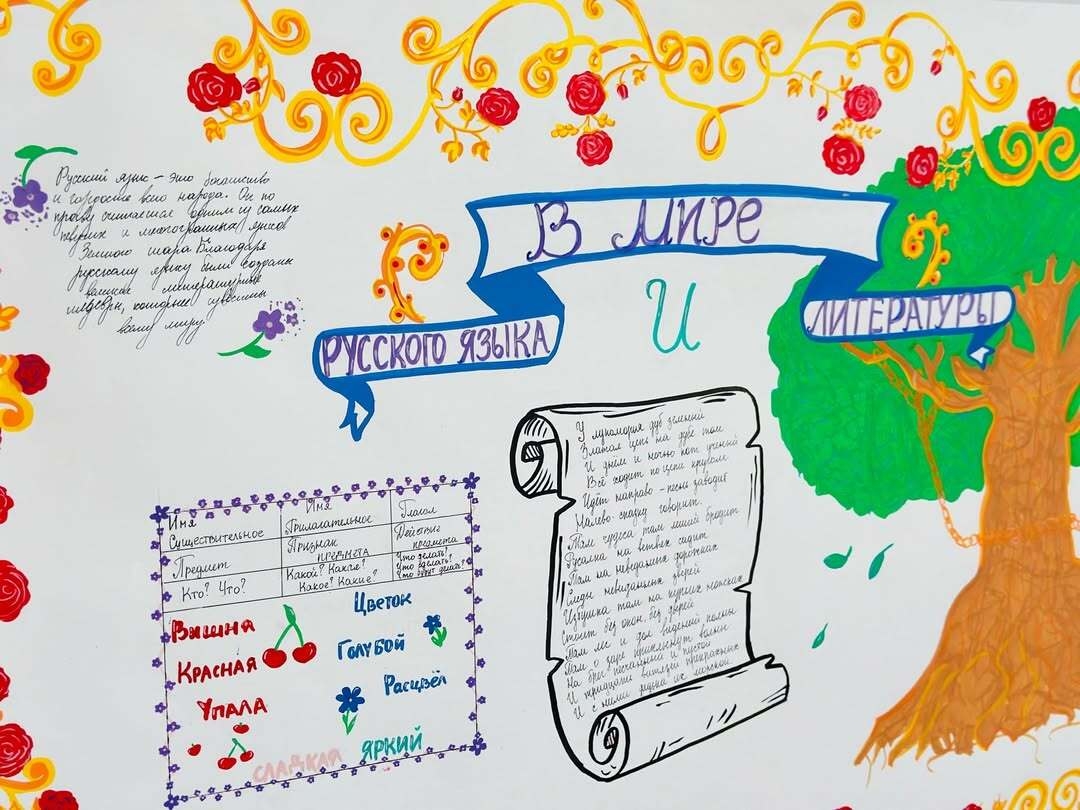 Русский язык – это богатство
и гордость всего народа. Он по
праву считается одним из самых
первых и многогранных языков
Земного шара. Благодаря
русскому языку были созданы
великие литературные
шедевры, которые известны
всему миру.
В МИРЕ
РУССКОГО ЯЗЫКА
И
ЛИТЕРАТУРЫ
Имя Существительное Имя Прилагательное Глагол
Предмет Признак предмета Действие предмета
Кто? Что? Какой? Какая? Какое? Какие? Что делать? Что сделать? Что будет делать?
Вишня
КРАСНАЯ
УПАЛА
СЛАДКАЯ
Цветок
Голубой
Расцвёл
ЯРКИЙ
У лукоморья дуб зелёный
Златая цепь на дубе том
И днём и ночью кот учёный
Всё ходит по цепи кругом
Идёт направо – песнь заводит
Налево – сказку говорит.
Там чудеса там леший бродит
Русалка на ветвях сидит
Там на неведомых дорожках
Следы невиданных зверей
Избушка там на курьих ножках
Стоит без окон, без дверей
Там лес и дол видений полны
Там о заре прихлынут волны
На брег песчаный и пустой
И тридцать витязей прекрасных
И с ними дядька их морской.